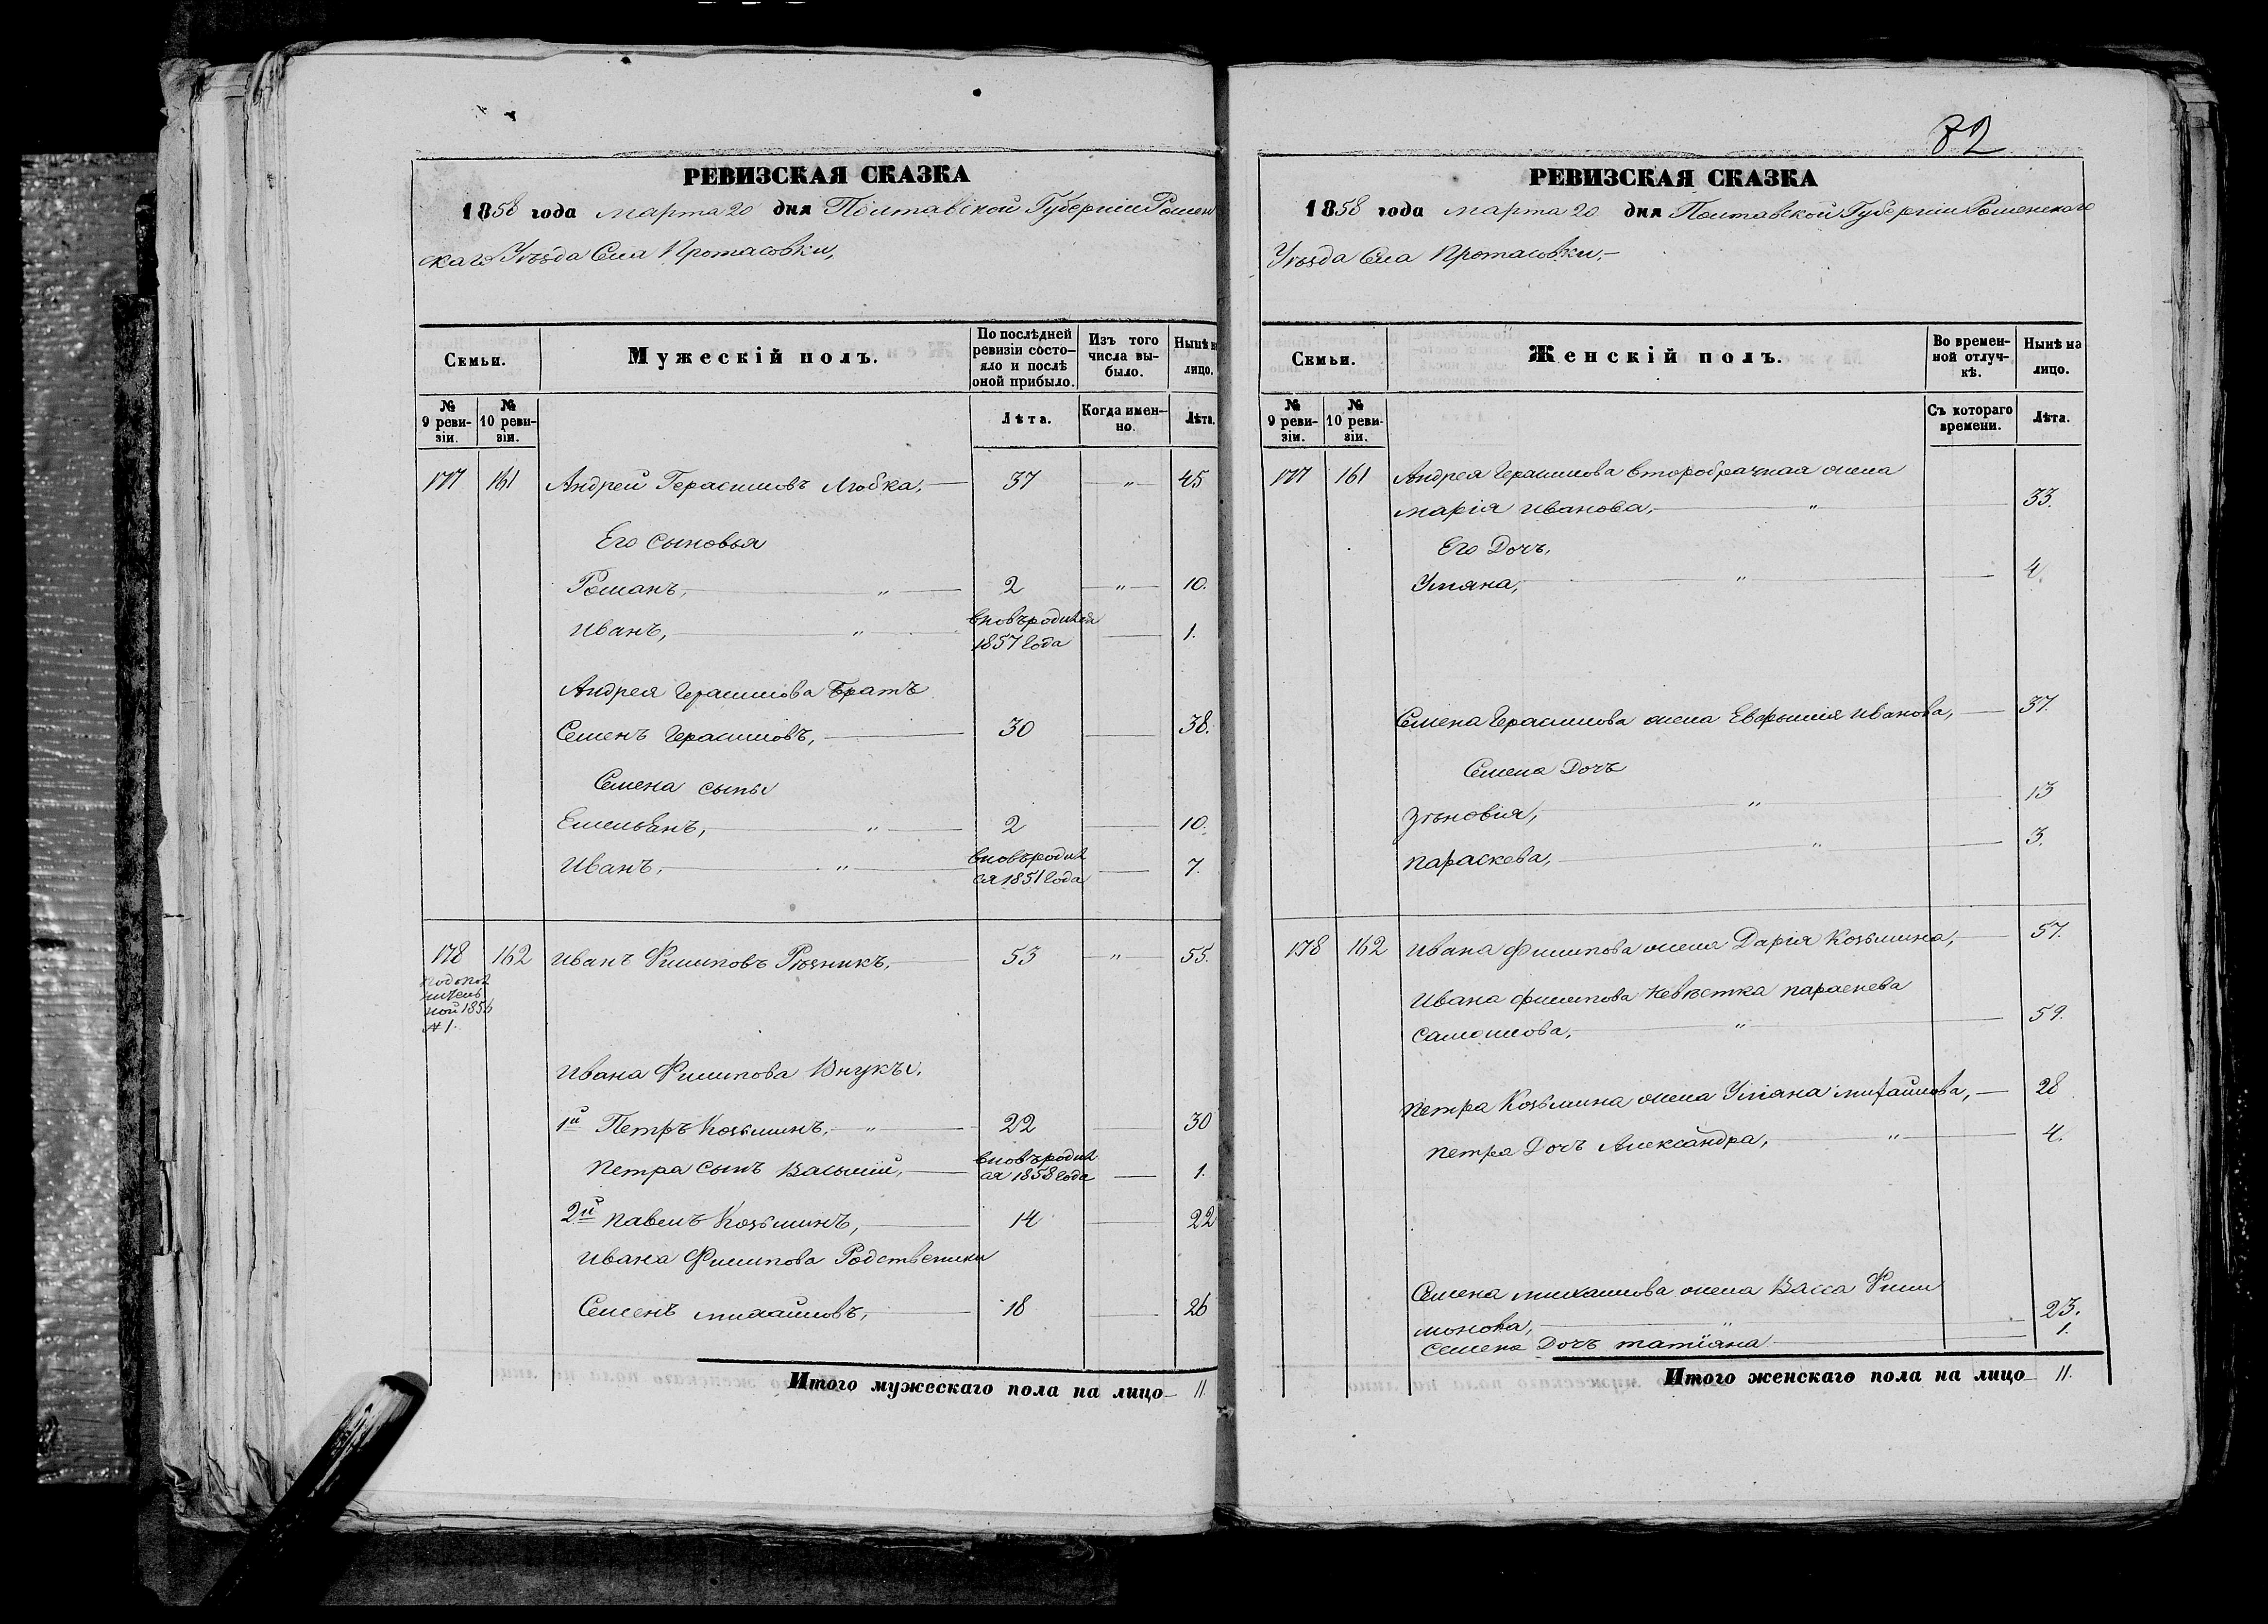 РЕВИЗСКАЯ СКАЗКА
1858 года марта 20 дня Полтавской Губерніи Ромен
скаго Уѣзда Села Протасовки,
Семьи.
Мужескій полъ.
По послѣдней ревизіи состо-яло и послѣ оной прибыло.
Изъ того числа вы-было.
Нынѣ н лицо.
№ 9 реви-зіи.
№ 10 реви-зіи.
Лѣта.
Когда имен-но.
Лѣта.
177 161 Андрей Герасимовъ Любка, 37 " 45
Его сыновья
Романъ, " 2 " 10.
Иванъ, " вновь родился 1857 года 1.
Андрея Герасимова Братъ
Семенъ Герасимовъ, 30 38.
Семена сыны
Емельянъ, " 2 10.
Иванъ, " вновь родил ся 1851 года 7.
178 162 Иванъ Филиповъ Рѣзникъ, 53 " 55.
№ 1.
Ивана Филипова Внукъи,
1й Петръ Козьминъ, " 22 30
Петра сынъ Василий, вновь родил ся 1858 года 1.
2й Павелъ Козьминъ, 14 22
Ивана Филипова Родственики
Семенъ Михайловъ, 18 26
Итого мужескаго пола на лицо 11.
82
РЕВИЗСКАЯ СКАЗКА
1858 года марта 20 дня Полтавской Губерніи Роменскаго
Уѣзда Села Протасовки,
Семьи.
Женскій полъ.
Во времен-ной отлуч-кѣ.
Нынѣ на лицо.
№ 9 реви-зіи.
№ 10 реви-зіи.
Съ котораго времени.
Лѣта.
177 161 Андрея Герасимова второбрачная жена
Марія Иванова, " 33.
Его Дочъ,
Уляна, " 4.
Семена Герасимова жена Евфимия Иванова, 37.
Семена Дочъ
Зѣновия, " 13
Параскева, " 3.
178 162 Ивана Филипова жена Дарія Козьмина, 57.
Ивана Филипова невѣстка Параскева
Самойлова, " 59.
Петра Козьмина жена Уляна Михайлова, 28
Петра Дочъ Александра, " 4.
Семена Михайлова жена Васса Фили
монова, " 23.
Семена Дочъ Татіяна 1.
Итого женскаго пола на лицо 11.